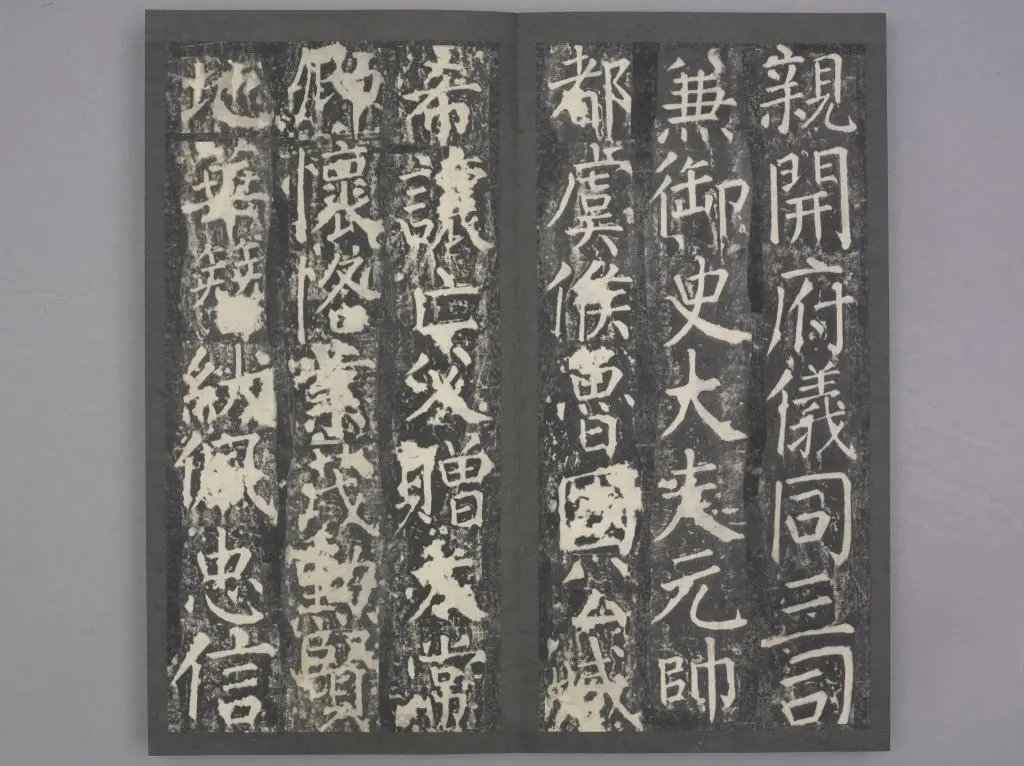 親開府儀同三司
兼御史大夫元帥
都虞候魯國公臧
希讓亡父贈太常
卿懷恪業茂勳賢
地華簪紱佩忠信